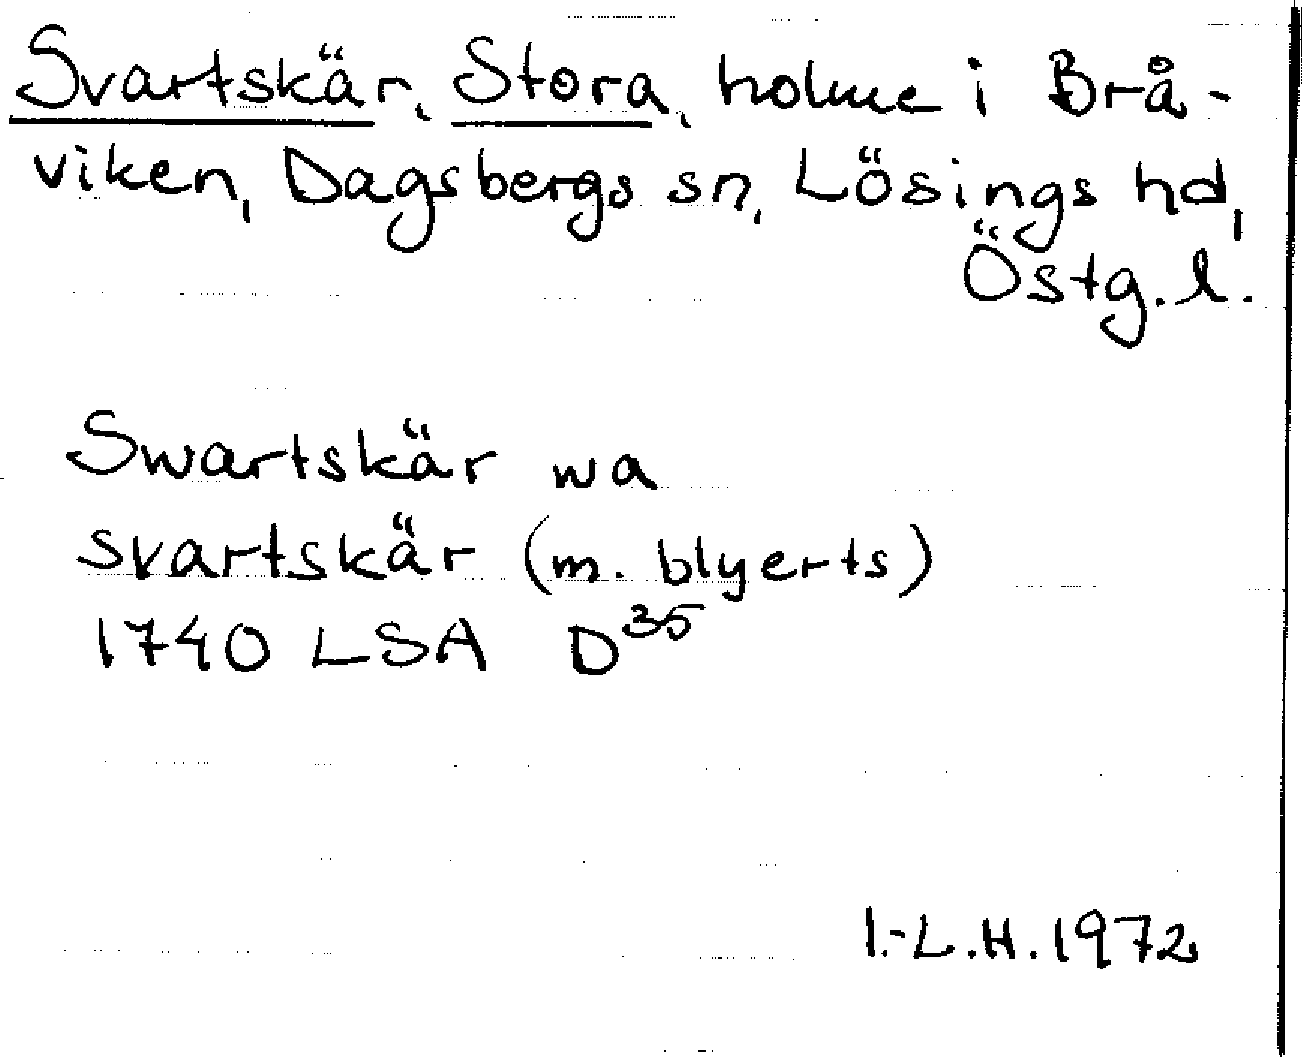 Svartskär, Stora, holme i Brå-
viken, Dagsbergs sn, Lösings hd,
Östg. l.
Swartskär wa
svartskär (m. blyerts)
1740 LSA D³⁵
I.-L.H. 1972